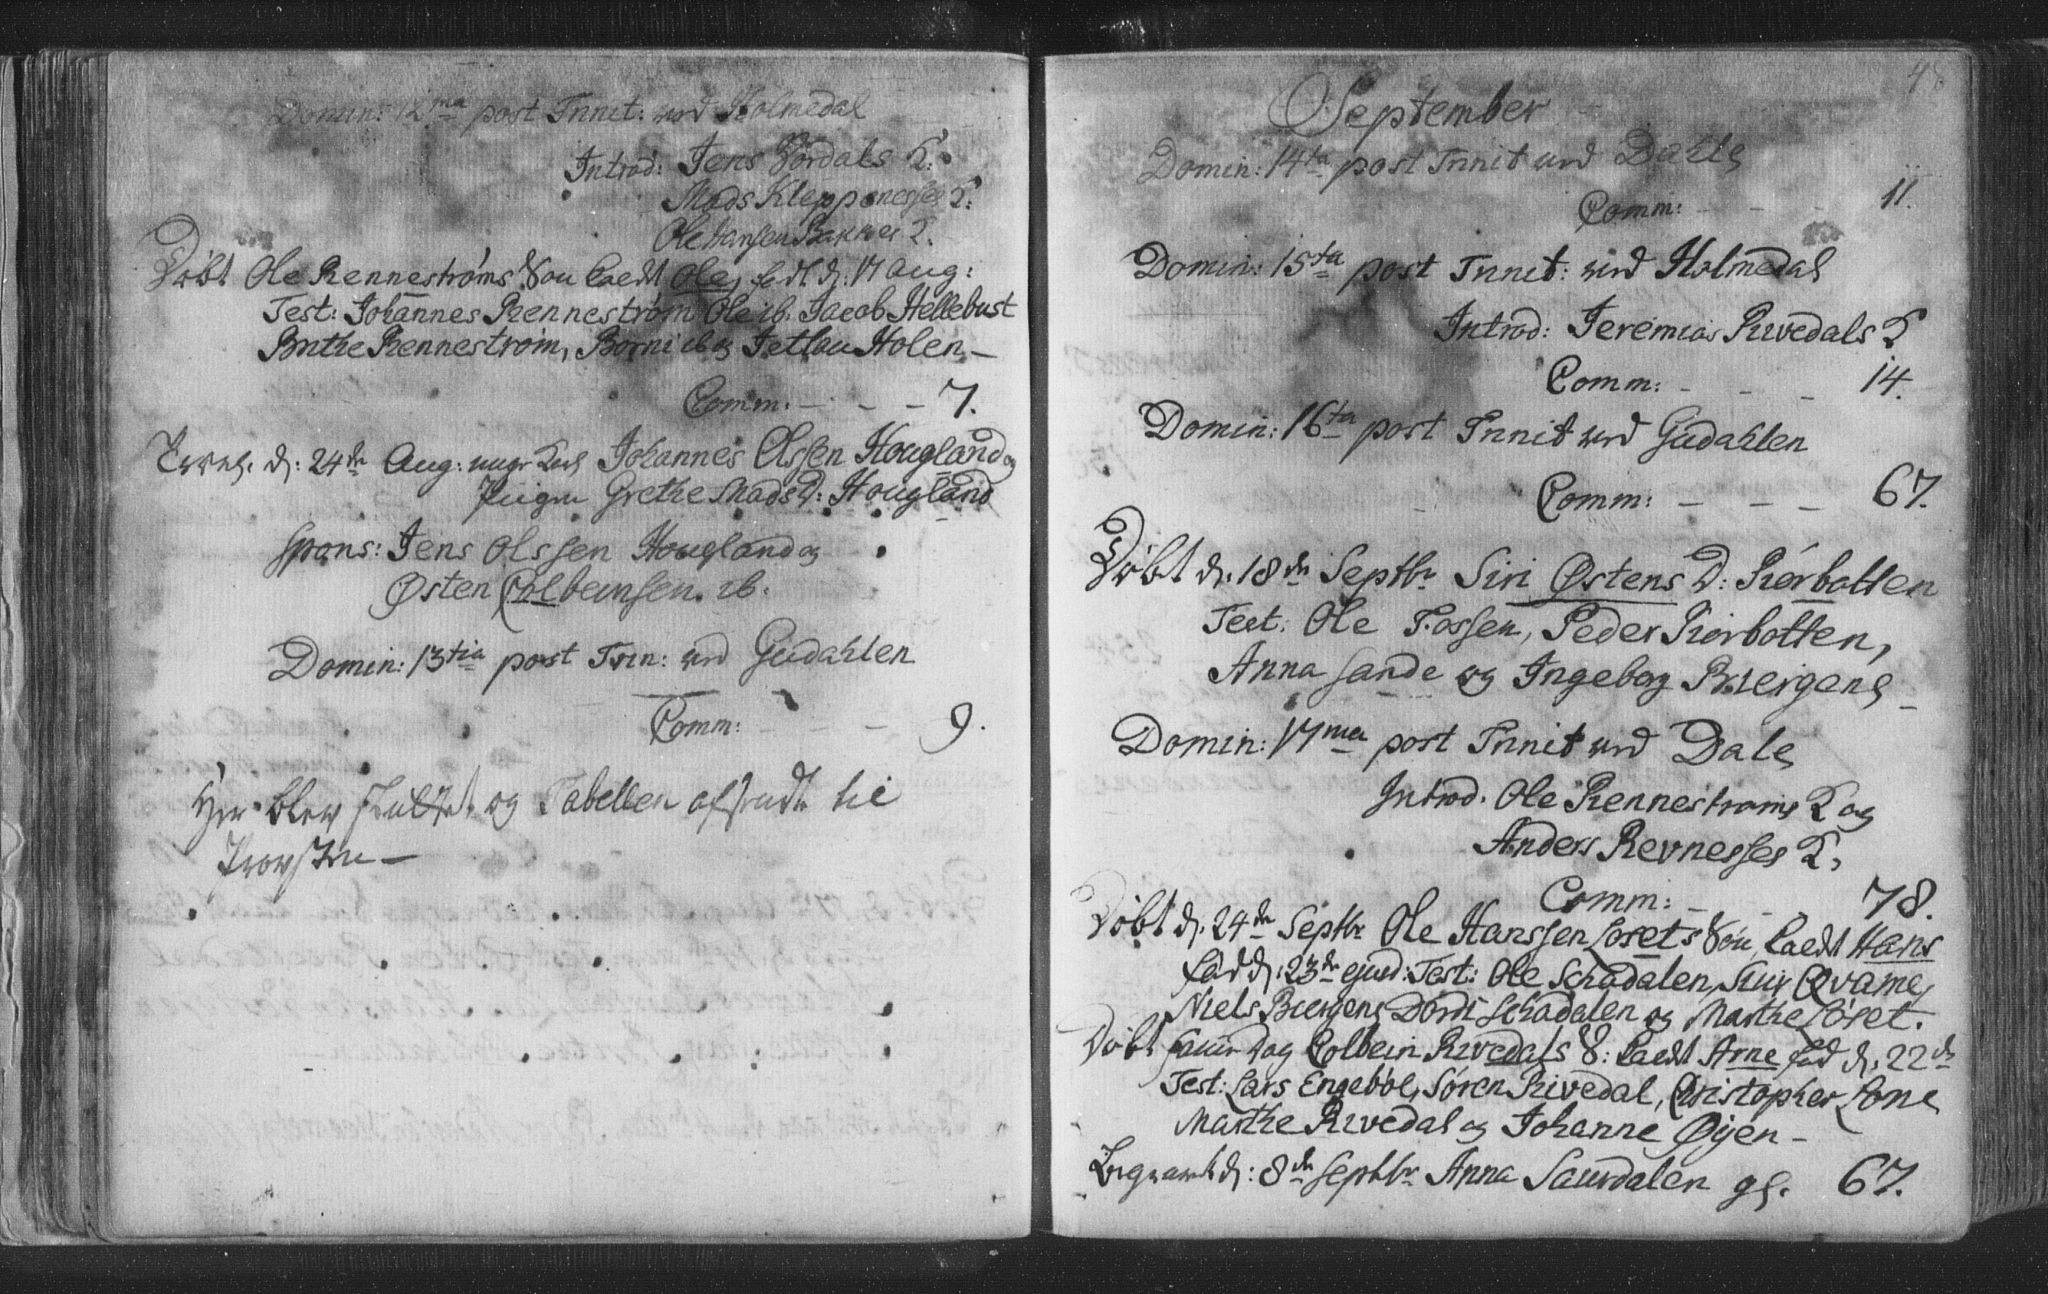 Domin: 12ma post Trinit: ved Holmedal
Introd: Jens Yordals K:
Mads Kleppenesses K:
Ole Hansen Bakkes K.
Døbt Ole Rennestrøms Søn kaedt Ole, født d: 17 Aug:
Test: Johannes Rennestrøm Ole ib. Jacob Hellebust
Brithe Rennestrøm, Borni ib og Jetlau Holen –
Comm: – – – 7.
d: 24de Aug: unge Karl Johannes Olssen Hougland og
Pigen Grethe Mads D: Hougland
Spons: Jens Olssen Hougland og
Østen Colbeinsen ib.
Domin: 13tia post Trin: ved Gudahlen
Comm: – – – 9.
Her blev sluttet og Tabellen afsendt til
Provsten –
48
September
Domin: 14ta post Trinit ved Dahle
Comm: – – – 11.
Domin: 15ta post Trinit: ved Holmedal
Introd: Jeremias Rivedals K
Comm: – – – 14.
Domin: 16ta post Trinit ved Gudahlen
Comm: – – – 67.
Døbt d: 18de Septbr Siri Østens D: Rørbotten
Test: Ole Fossen, Peder Rørbotten,
Anna Sande og Ingeborg Biergene –
Domin: 17ma post Trinit ved Dale
Introd. Ole Rennestrøms K og
Anders Revnesses K:
Comm: – – 78.
Døbt d: 24de Septbr Ole Hanssen Lørets Søn kaedt Hans
fød d: 23de ejusd: Test: Ole Schadalen, Siur Qvame,
Niels Biergene Dordi Schadalen og Marthe Løret.
Døbt samme Dag Colbein Rivedals S: kaedt Arne fød d: 22de
Test: Lars Engebøe, Søren Rivedal, Christopher Lone
Marthe Rivedal og Johanne Øyen –
Begravet d: 8de Septbr Anna Saurdalen gl. 67.